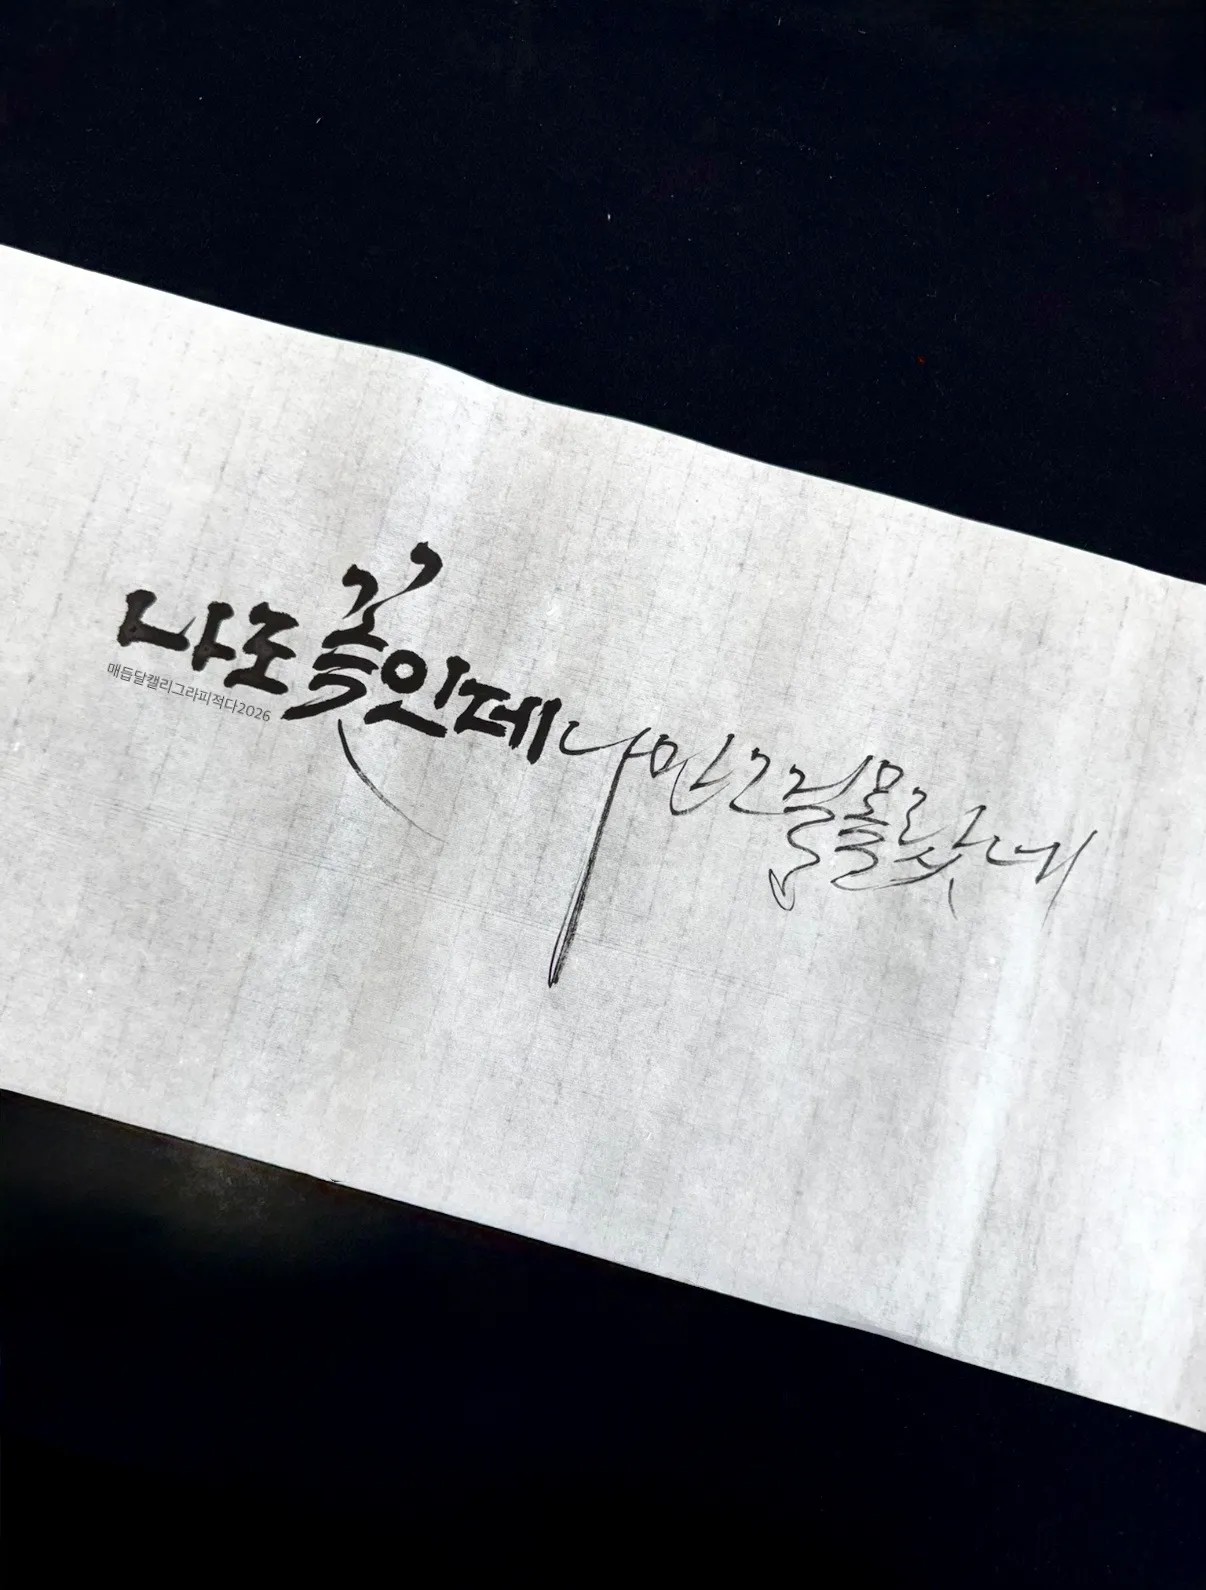 나도 꽃인데 나만 그걸 몰랐네
매듭달캘리그라피적다2026